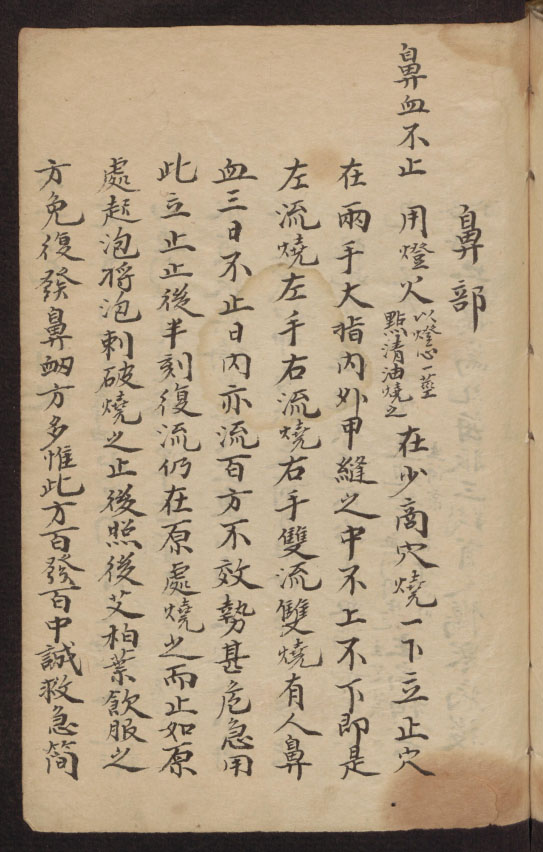 鼻部
鼻血不止 用燈火以燈心一莖點清油燒之在少商穴燒一下立止穴
在兩手大指內外甲縫之中不上不下即是
左流燒左手右流燒右手雙流雙燒有人鼻
血三日不止日內亦流百方不效勢甚危急用
此立止止後半刻復流仍在原處燒之而止如原
處起泡將泡刺破燒之止後照後艾柏葉飲服之
方免復發鼻衂方多惟此方百發百中誠救急簡